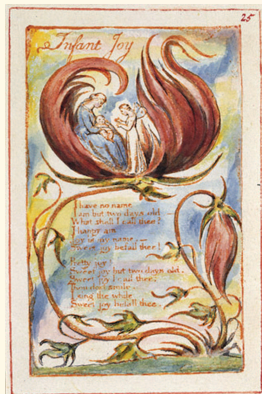 25
Infant Joy
I have no name
I am but two days old.—
What shall I call thee?
I happy am
Joy is my name,—
Sweet joy befall thee!
Pretty joy!
Sweet joy but two days old,
Sweet joy I call thee:
Thou dost smile.
I sing the while
Sweet joy befall thee.